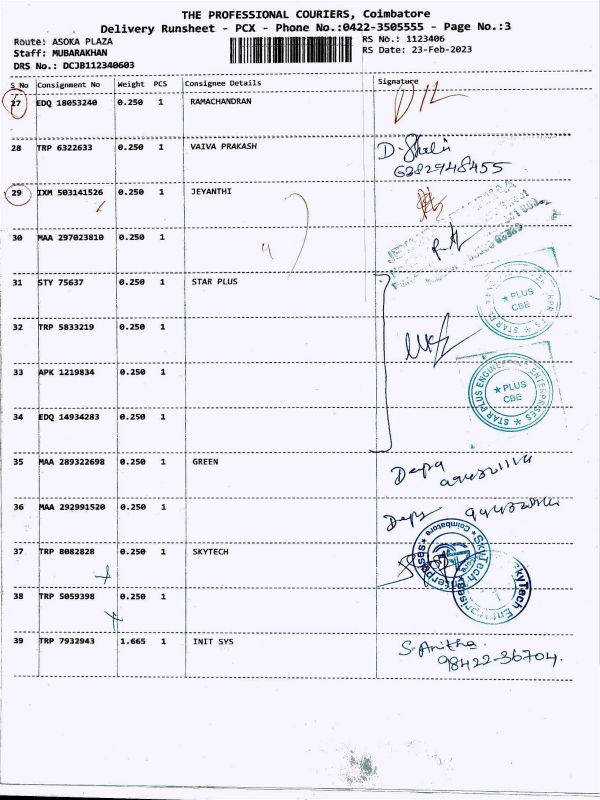 THE PROFESSIONAL COURIERS, Coimbatore
Delivery Runsheet - PCX - Phone No.:0422-3505555 - Page No.:3
Route: ASOKA PLAZA
RS No.: 1123406
Staff: MUBARAKHAN
RS Date: 23-Feb-2023
DRS No.: DCJB112340603
S No Consignment No Weight PCS Consignee Details Signature
27 EDQ 18053240 0.250 1 RAMACHANDRAN
28 TRP 6322633 0.250 1 VAIVA PRAKASH
6282948455
29 IXM 503141526 0.250 1 JEYANTHI
30 MAA 297023810 0.250 1
31 STY 75637 0.250 1 STAR PLUS
★ PLUS
CBE
32 TRP 5833219 0.250 1
33 APK 1219834 0.250 1
STAR PLUS ENGINEERING ENTERPRISES
★ PLUS
CBE
34 EDQ 14934283 0.250 1
35 MAA 289322698 0.250 1 GREEN
36 MAA 292991520 0.250 1
37 TRP 8082828 0.250 1 SKYTECH
SkyTech Enterprises ★ Coimbatore ★
38 TRP 5059398 0.250 1
SkyTech Enterprises
39 TRP 7932943 1.665 1 INIT SYS
S. Anitha
98422-36704.